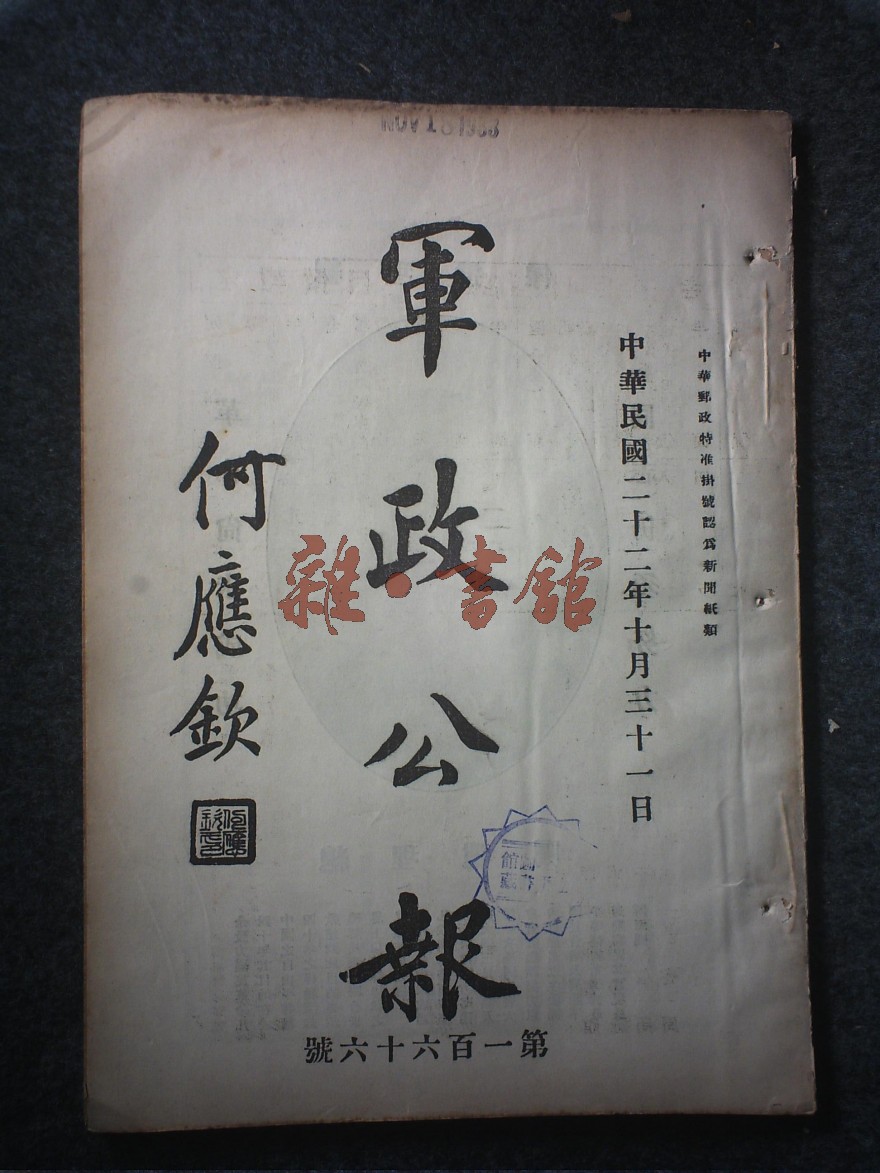 NOV 18 1933
中華郵政特准掛號認爲新聞紙類
中華民國二十二年十月三十一日
軍政公報
何應欽
第一百六十六號
雜·書館